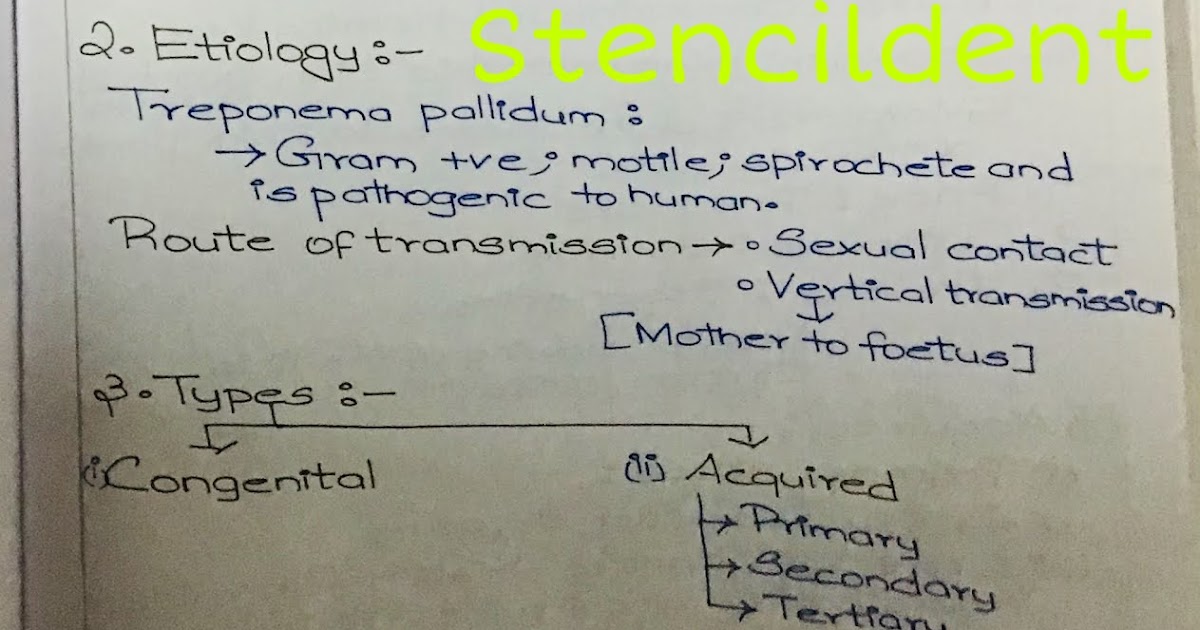 2. Etiology :- Stencildent
Treponema pallidum :
→ Gram +ve; motile; spirochete and
is pathogenic to human.
Route of transmission → • Sexual contact
• Vertical transmission
↓
[Mother to foetus]
3. Types :-
(i) Congenital (ii) Acquired
→ Primary
→ Secondary
→ Tertiary